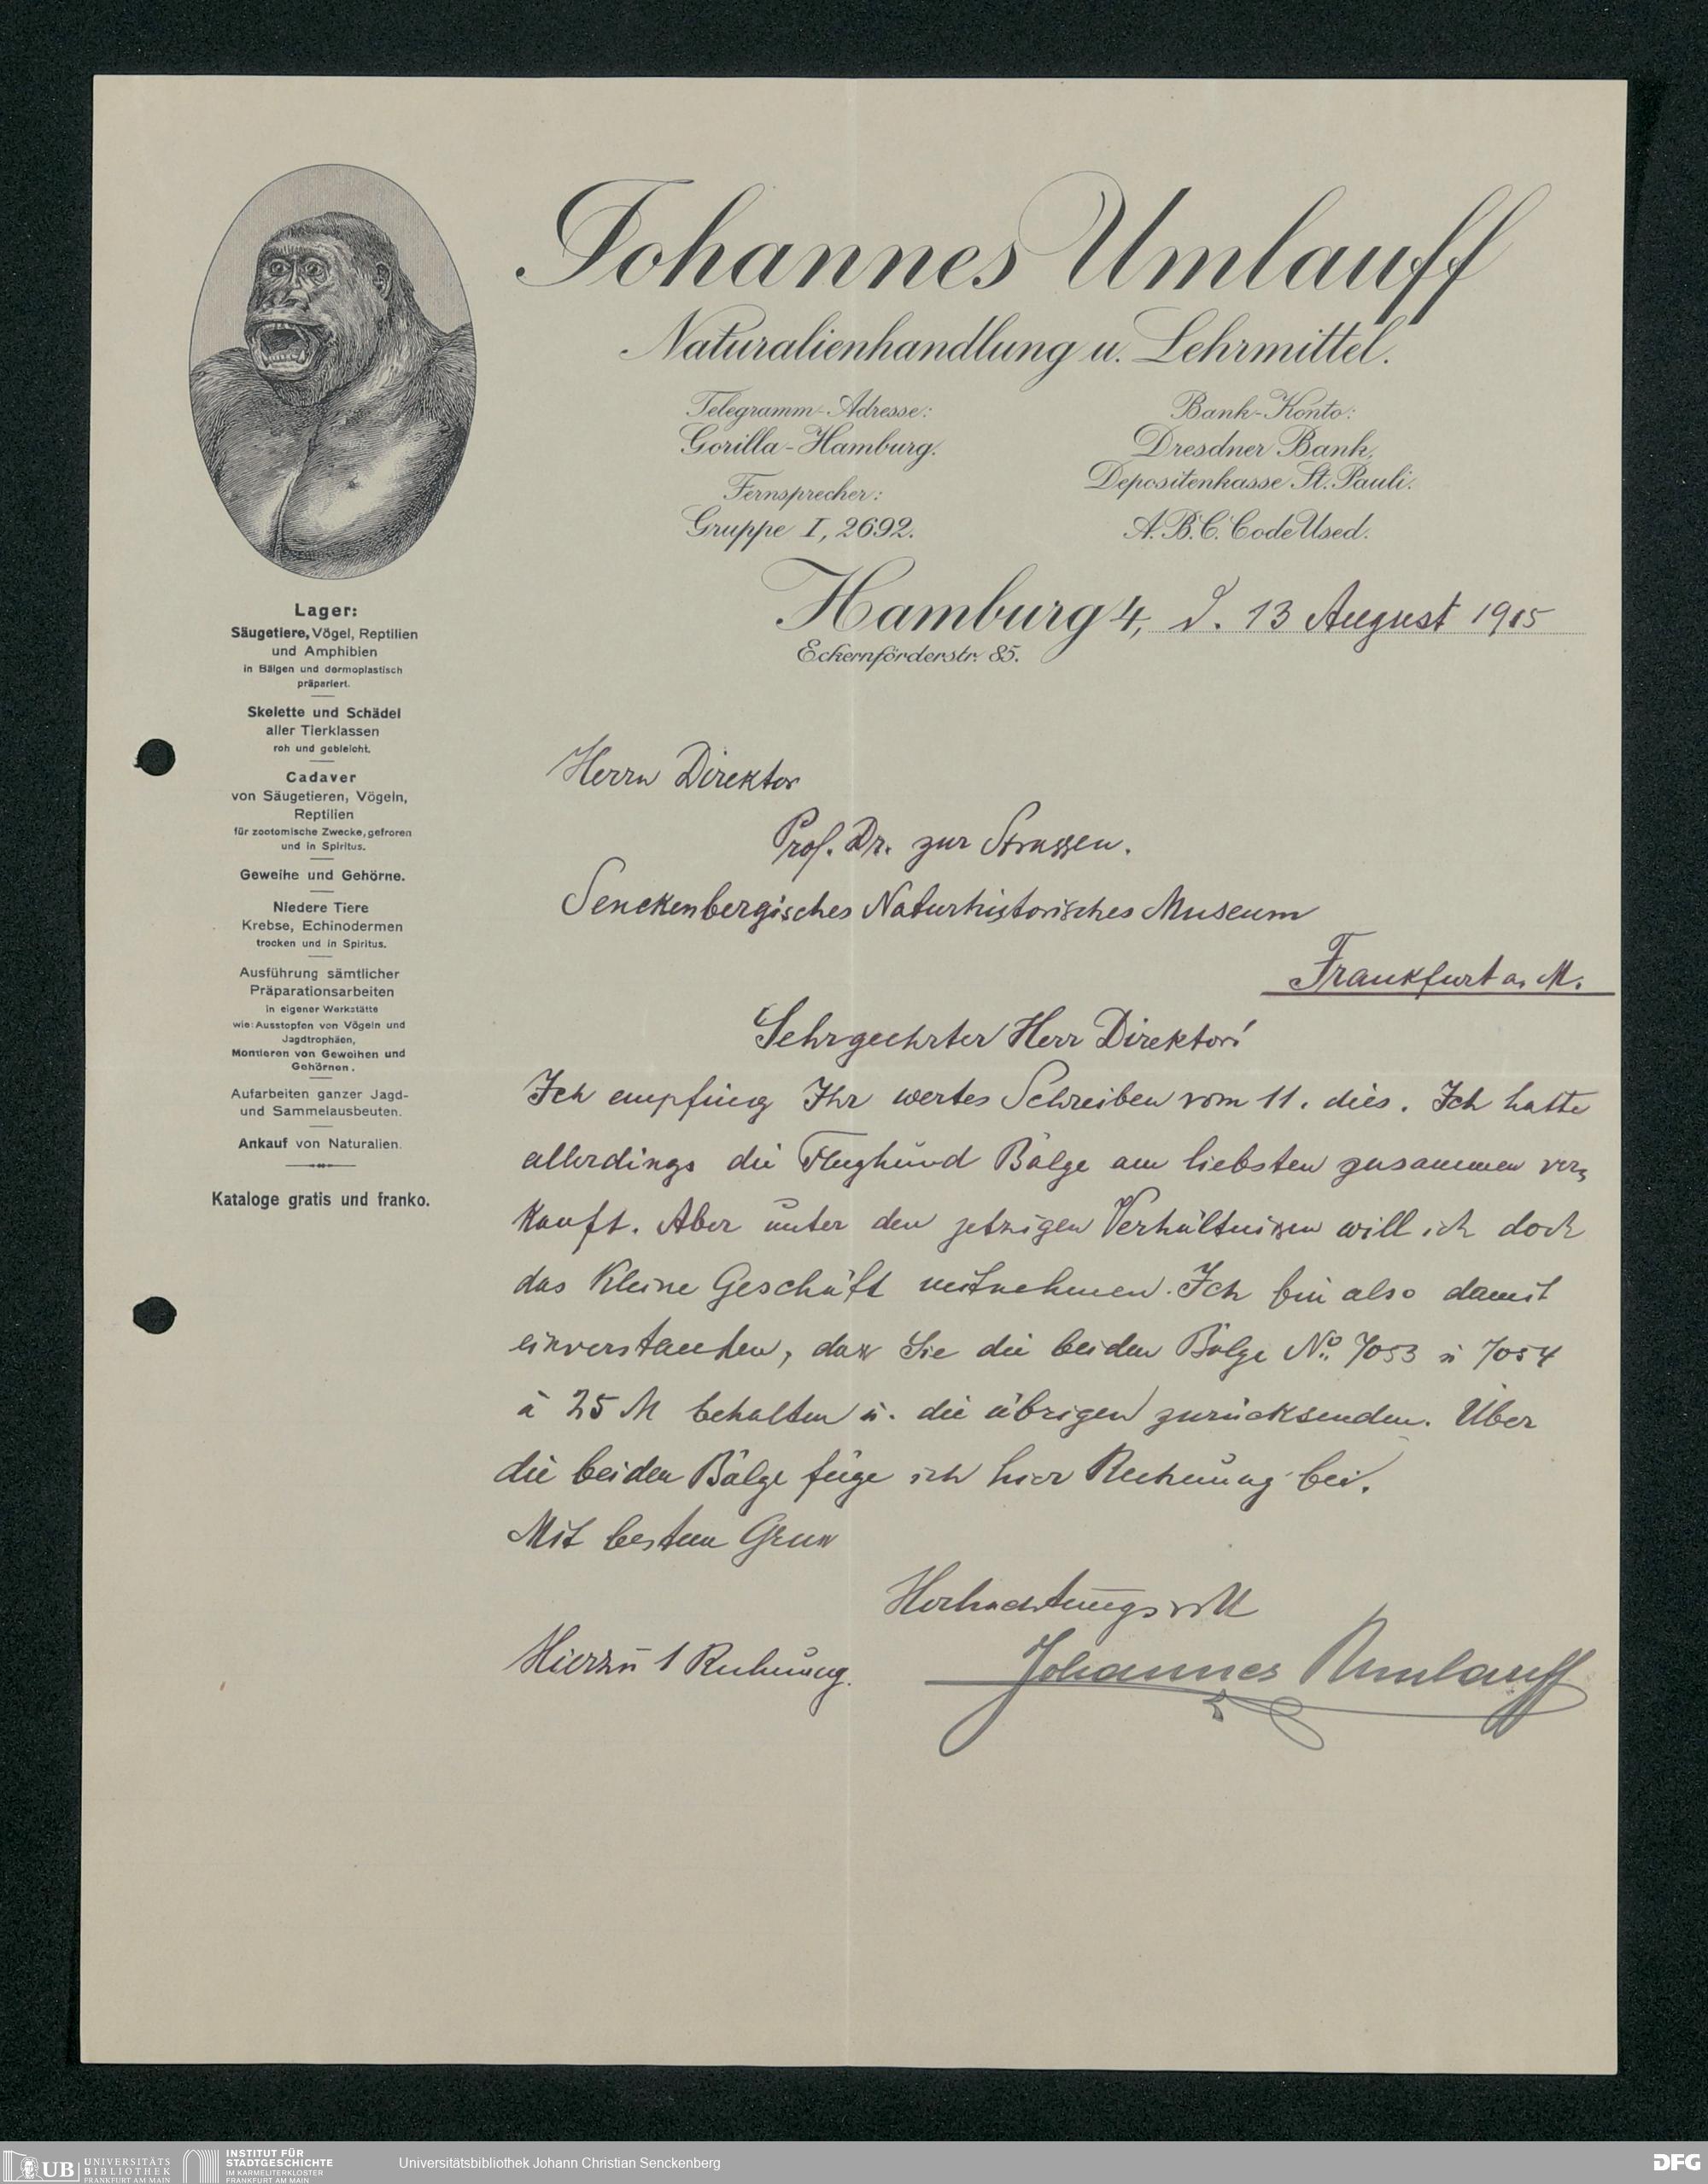 Johannes Umlauff
Naturalienhandlung u. Lehrmittel.
Telegramm-Adresse:
Gorilla-Hamburg.
Fernsprecher:
Gruppe I, 2692.
Bank-Konto:
Dresdner Bank,
Depositenkasse St. Pauli.
A.B.C. Code Used.
Hamburg 4, d. 13 August 1915
Eckernförderstr. 85.
Lager:
Säugetiere, Vögel, Reptilien
und Amphibien
in Bälgen und dermoplastisch
präpariert.
Skelette und Schädel
aller Tierklassen
roh und gebleicht.
Cadaver
von Säugetieren, Vögeln,
Reptilien
für zootomische Zwecke, gefroren
und in Spiritus.
Geweihe und Gehörne.
Niedere Tiere
Krebse, Echinodermen
trocken und in Spiritus.
Ausführung sämtlicher
Präparationsarbeiten
in eigener Werkstätte
wie: Ausstopfen von Vögeln und
Jagdtrophäen,
Montieren von Geweihen und
Gehörnen.
Aufarbeiten ganzer Jagd-
und Sammelausbeuten.
Ankauf von Naturalien.
Kataloge gratis und franko.
Herrn Direktor
Prof. Dr. zur Strassen.
Senckenbergisches Naturhistorisches Museum
Frankfurt a. M.
Sehrgeehrter Herr Direktor!
Ich empfing Ihr wertes Schreiben vom 11. dies. Ich hatte
allerdings die Flughund Bälge am liebsten zusammen ver=
kauft. Aber unter den jetzigen Verhältnissen will ich doch
das kleine Geschäft mitnehmen. Ich bin also damit
einverstanden, dass Sie die beiden Bälge No. 7053 u 7054
à 25 M behalten u. die übrigen zurücksenden. Über
die beiden Bälge füge ich hier Rechnung bei.
Mit bestem Gruss
Hochachtungsvoll
Hierzu 1 Rechnung.
Johannes Umlauff
UB
UNIVERSITÄTS
BIBLIOTHEK
FRANKFURT AM MAIN
INSTITUT FÜR
STADTGESCHICHTE
IM KARMELITERKLOSTER
FRANKFURT AM MAIN
Universitätsbibliothek Johann Christian Senckenberg
DFG